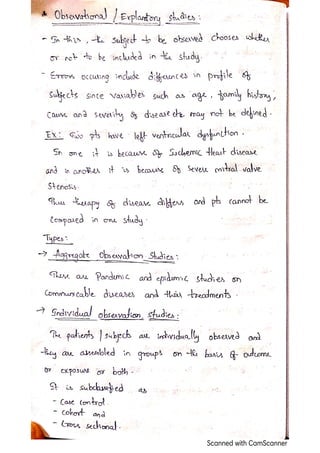 * Observational / Explantory studies :
- In this, the subject to be observed chooses whether
or not to be included in the study.
- Errors occuring include differences in profile of
subjects since variables such as age, family history,
cause and severity of disease etc may not be defined.
Ex: Two pts have left ventricular dysfunction.
In one it is because of Ischemic Heart disease
and in another it is because of severe mitral valve
stenosis.
Thus therapy of disease differs and pts cannot be
compared in one study.
Types:
→ Aggregate Observation Studies:
These are Pandemic and epidemic studies on
Communicable diseases and their treatments.
→ Individual observation studies:
The patients / subjects are individually observed and
they are assembled in groups on the basis of outcome
or exposure or both.
It is subclassified as
- Case control
- Cohort and
- Cross sectional.
Scanned with CamScanner